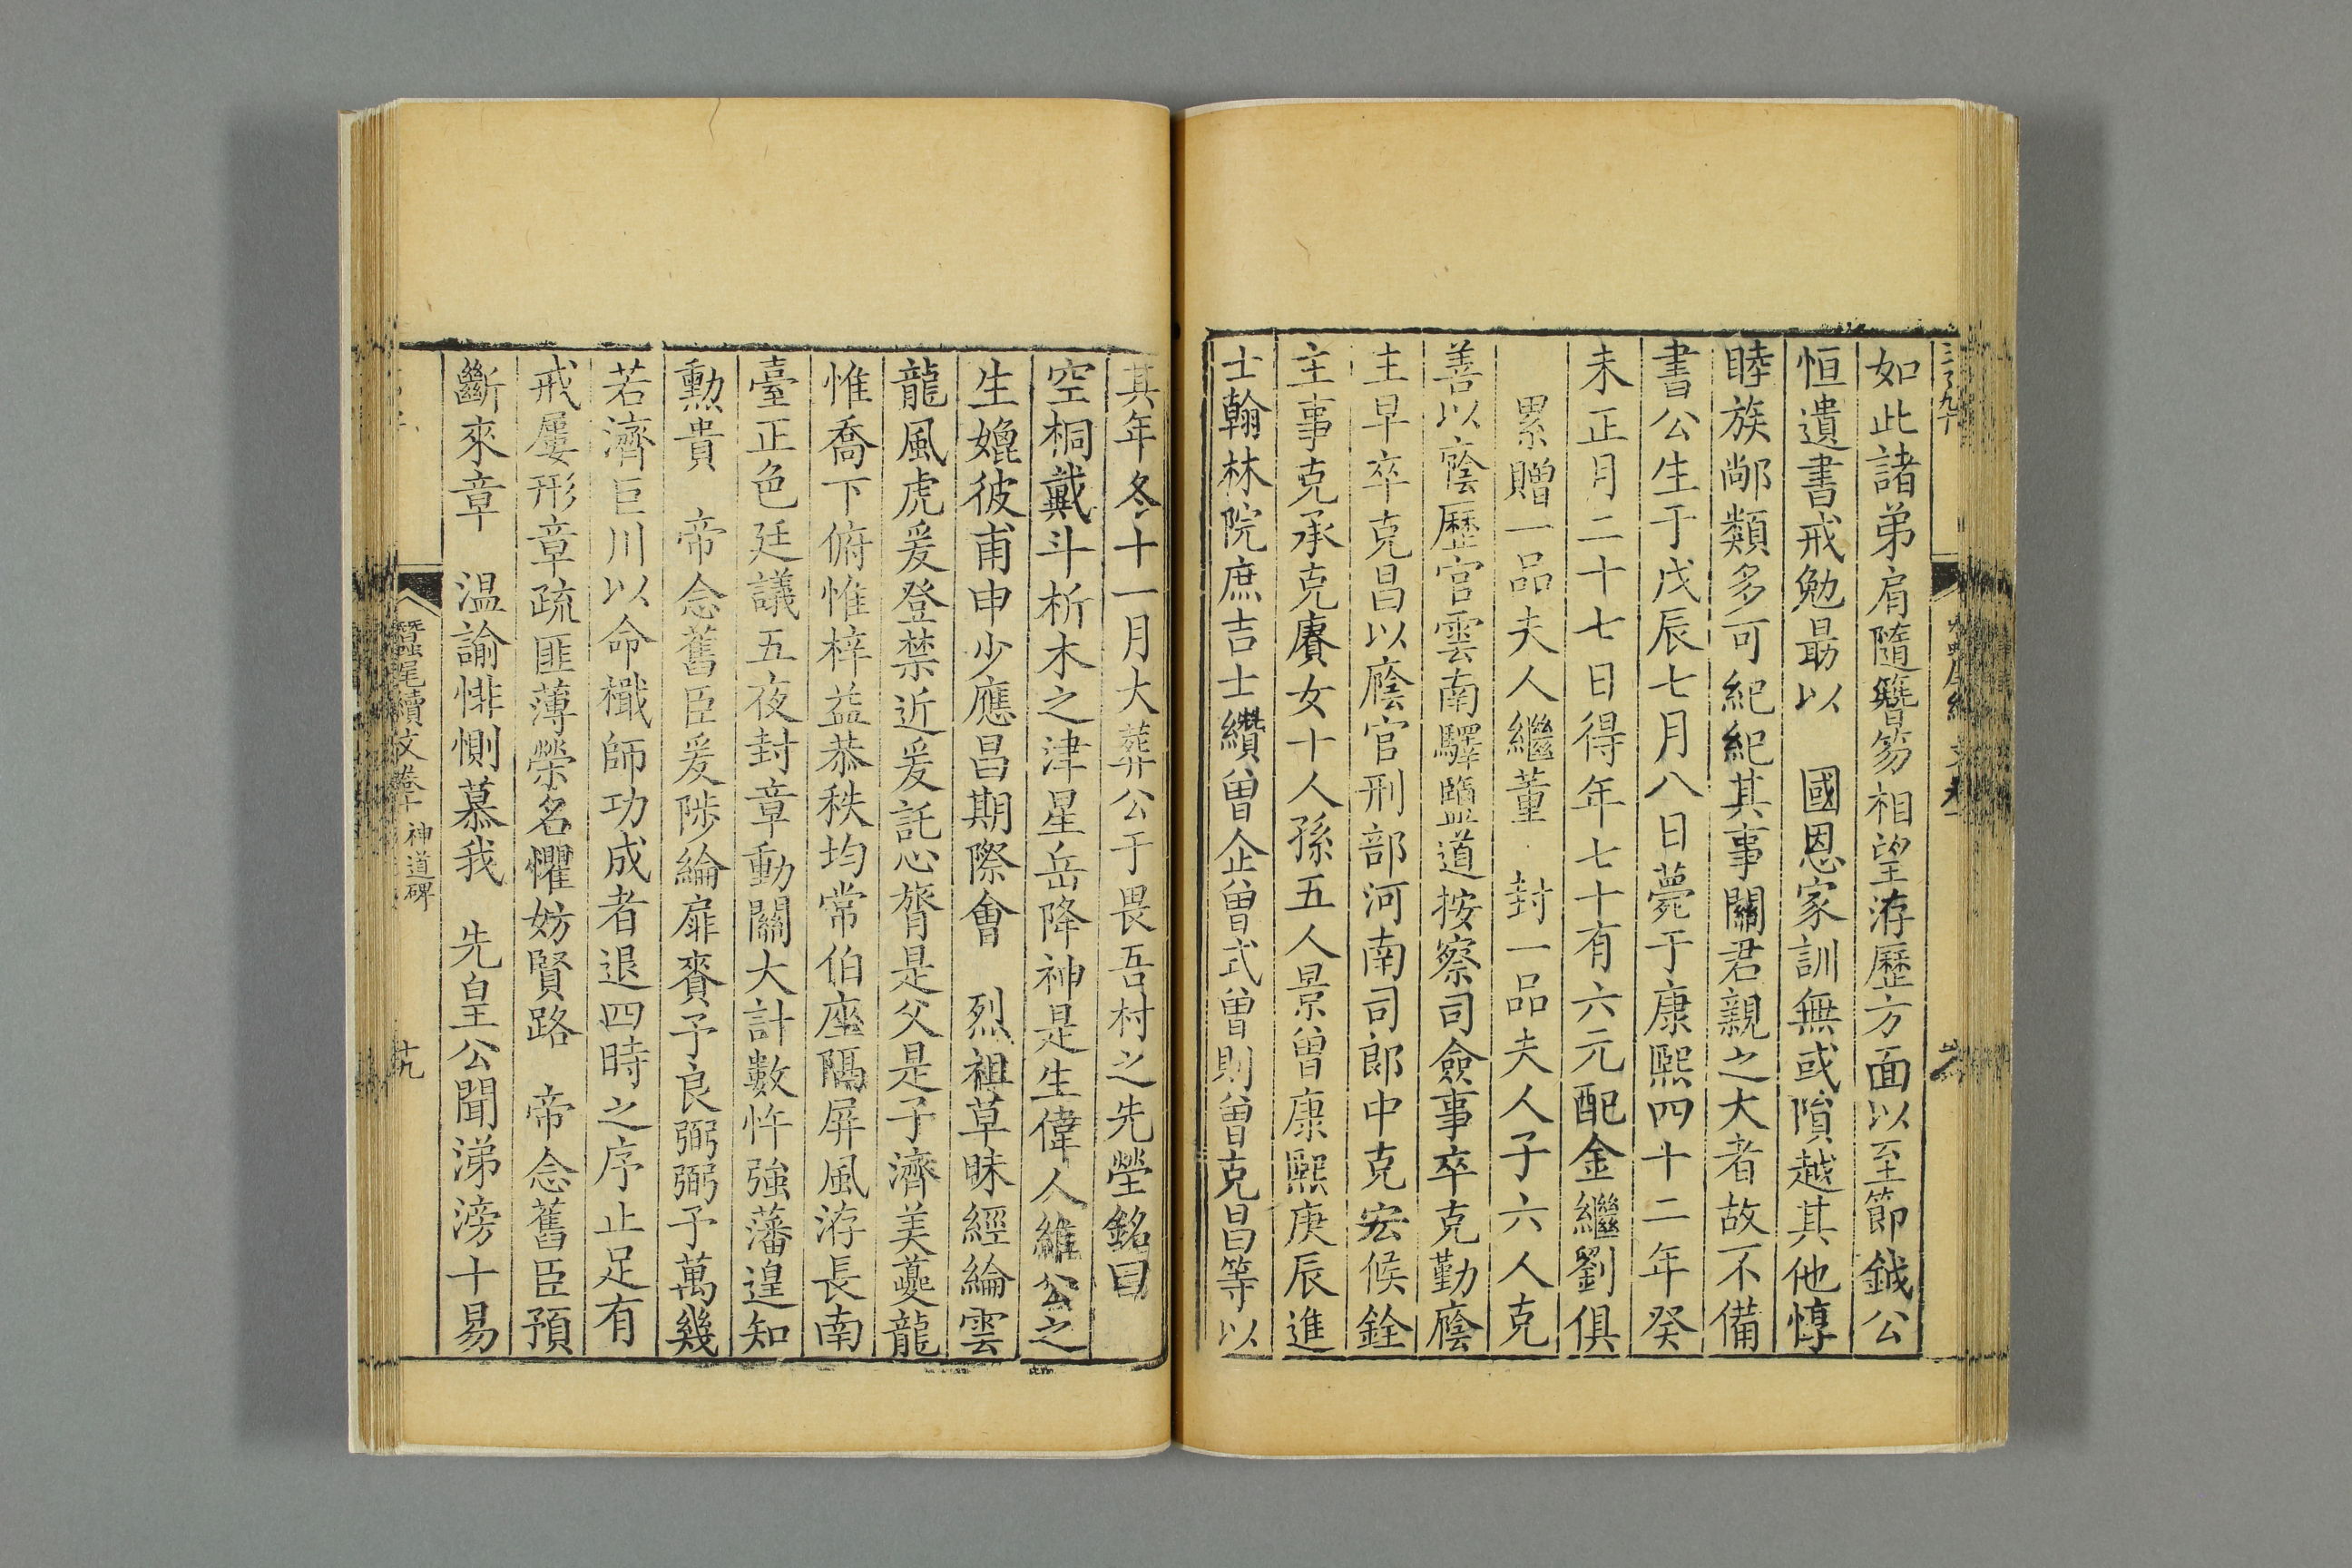 如此諸弟肩隨簪笏相望洊歷方面以至節鉞公
恒遺書戒勉最以　國恩家訓無或隕越其他惇
睦族鄰類多可紀紀其事關君親之大者故不備
書公生于戊辰七月八日薨于康熙四十二年癸
未正月二十七日得年七十有六元配金繼劉俱
累贈一品夫人繼董　封一品夫人子六人克
善以廕歷官雲南驛鹽道按察司僉事卒克勤廕
主早卒克昌以廕官刑部河南司郎中克宏候銓
主事克承克賡女十人孫五人景曾康熙庚辰進
士翰林院庶吉士纘曾企曾式曾則曾克昌等以
其年冬十一月大葬公于畏吾村之先塋銘曰
空桐戴斗析木之津星岳降神是生偉人維公之
生媲彼甫申少應昌期際會　烈祖草昧經綸雲
龍風虎爰登禁近爰託心膂是父是子濟美夔龍
惟喬下俯惟梓益恭秩均常伯座隔屏風洊長南
臺正色廷議五夜封章動關大計數忤強藩遑知
勲貴　帝念舊臣爰陟綸扉賚予良弼弼予萬幾
若濟巨川以命檝師功成者退四時之序止足有
戒屢形章疏匪薄榮名懼妨賢路　帝念舊臣預
斷來章　温諭悱惻慕我　先皇公聞涕滂十易
蠶尾續文卷　神道碑　十九